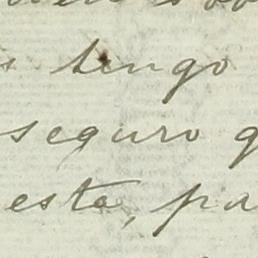 s tengo
seguro q
esta, pa